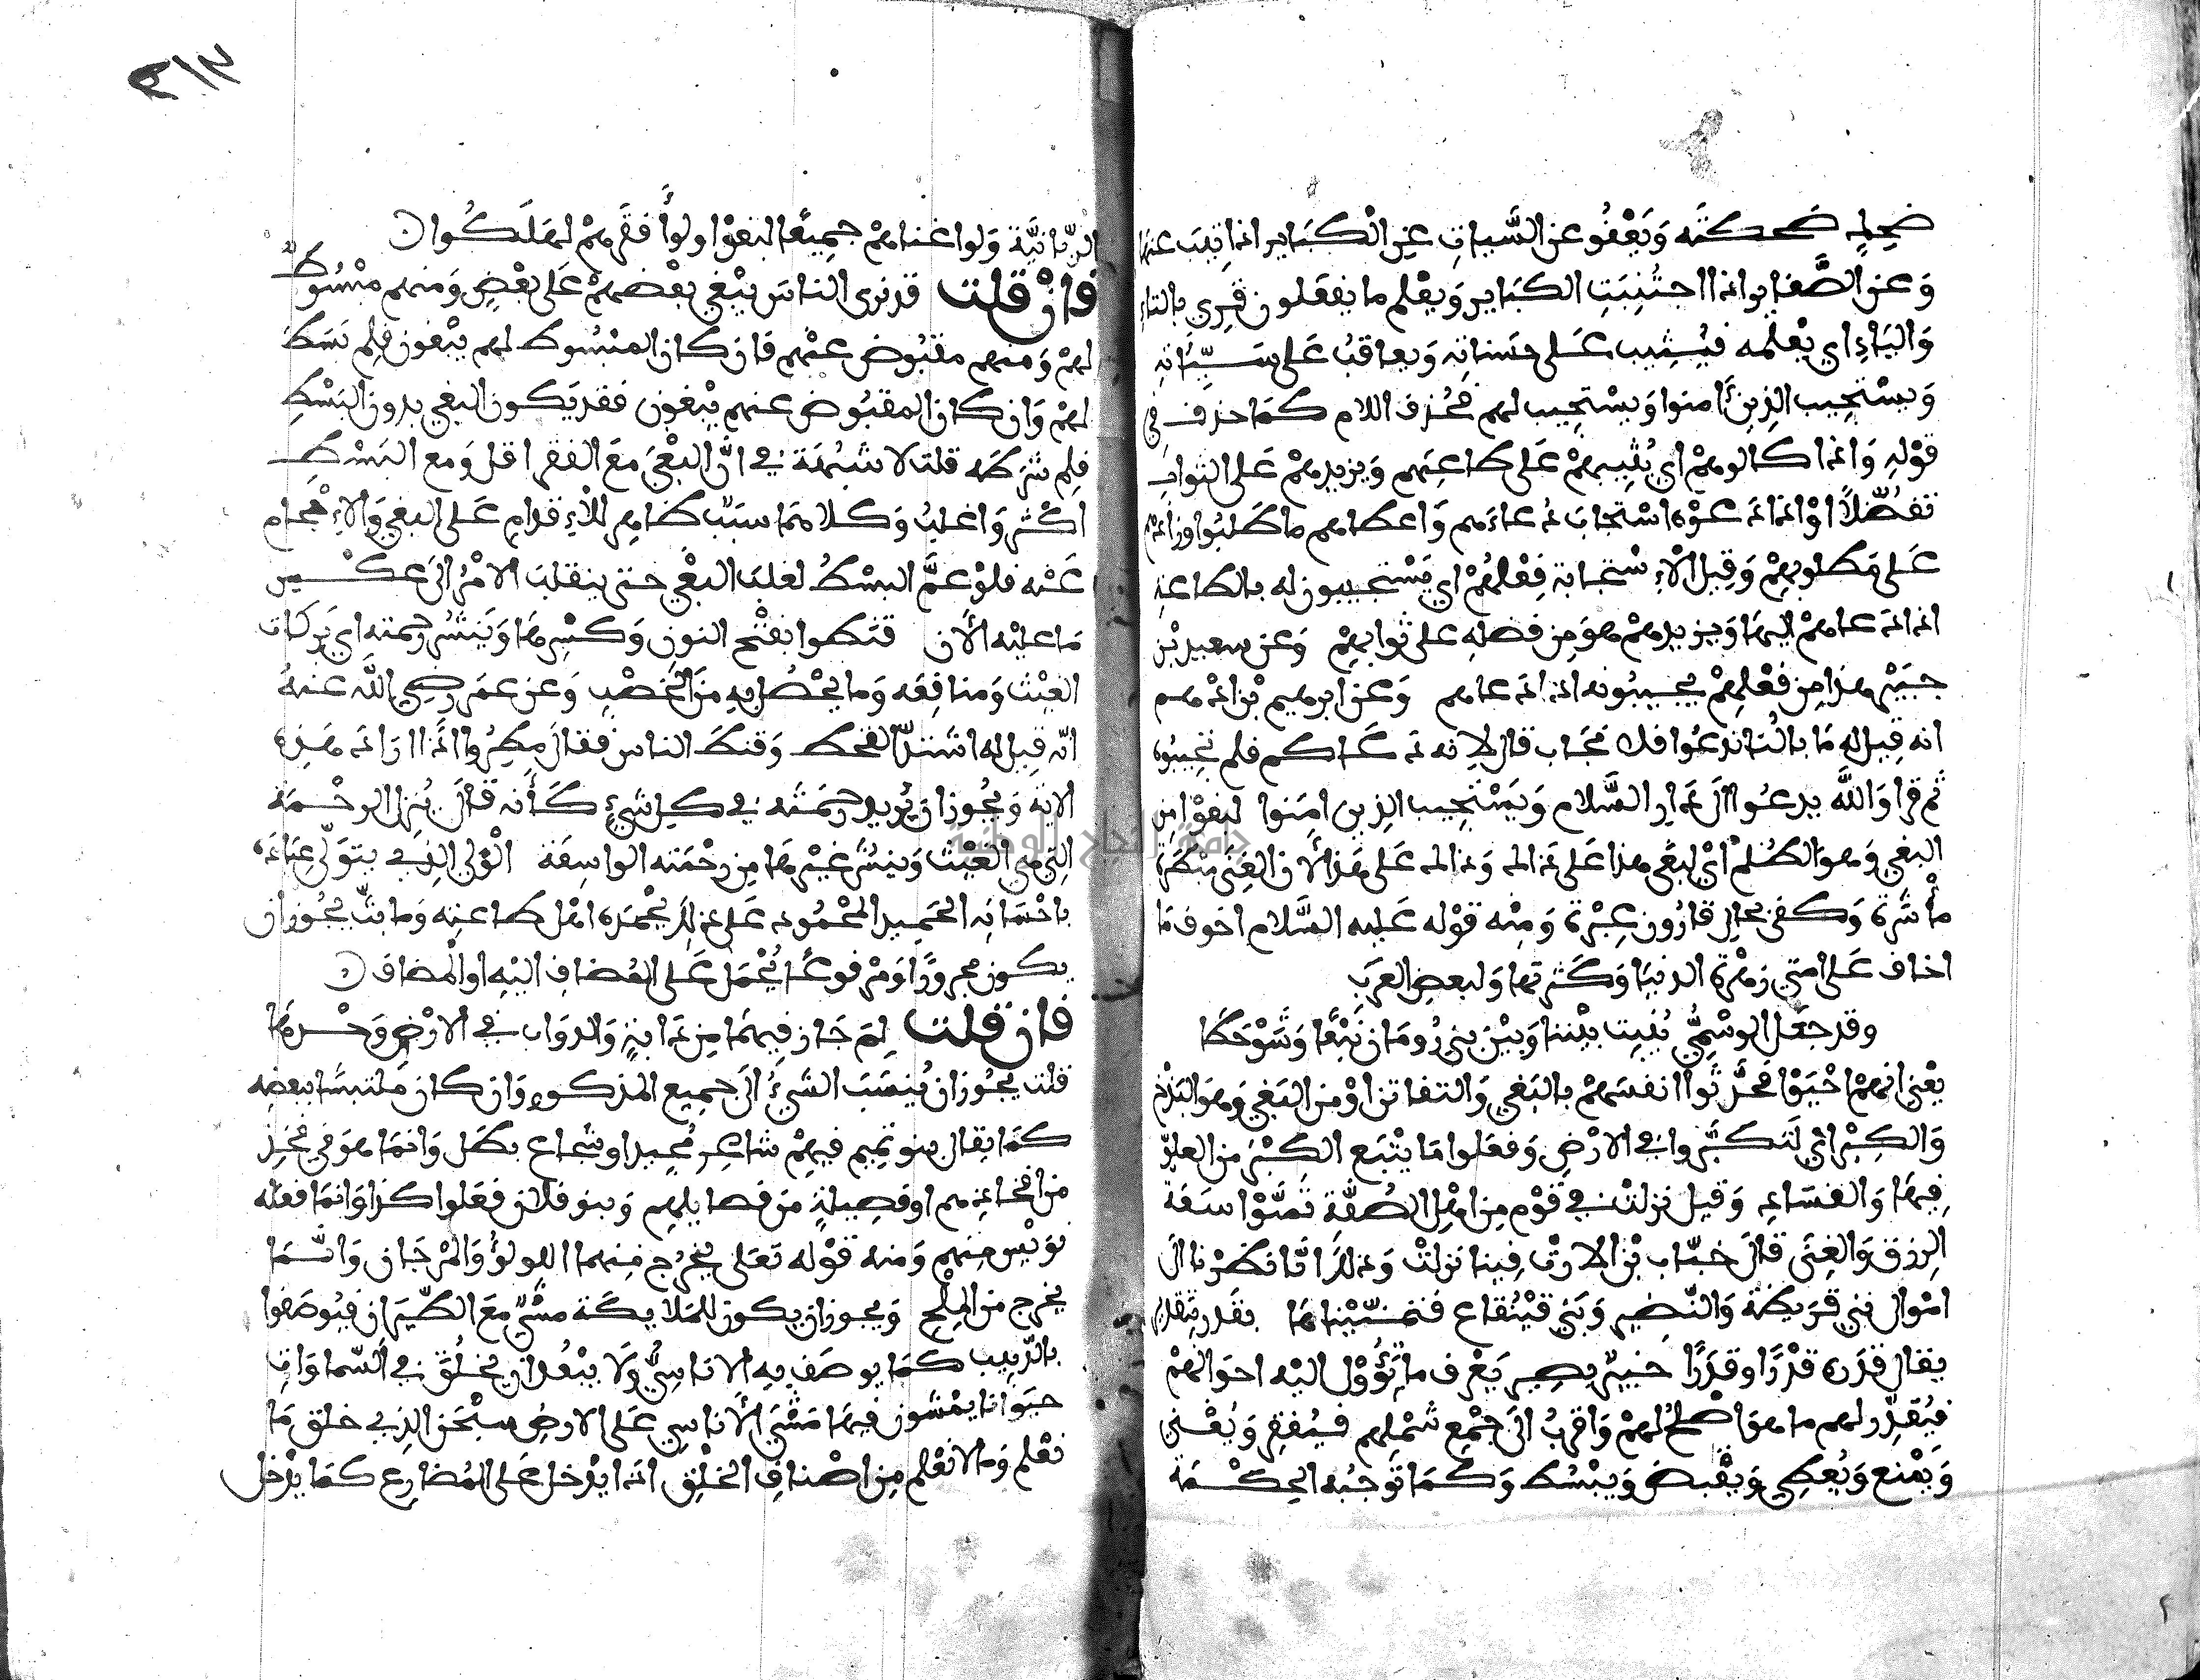 ضحِك ضحكته وَيَعْفُو عن السَّيات عَنِ الْكَبَاير اذا تِيبَ عنها
وَعن الصَّغاير اذا اجتُنِبَتِ الكبَاير وَيعْلم ما يفعَلون قرِي بالتاءِ
وَاليَاءِ اي يعْلمه فيُثِيب عَلى حسَناته وَيعاقبُ عَلى سَيِّئَاته
وَيسْتجيب الذِين ءَامنوا وَيسْتجِيب لهم فحُذف اللام كمَا حذف في
قوْلهِ وَاذا كالوهمْ اي يُثِيبهمْ عَلى طاعتِهم وَيزيدهمْ عَلى الثواب
تفضُّلًا اوْ اذا دعوْه اسْتجَابَ دُعاءَهم وَاعطاهم ما طَلبُوا وزادهم
عَلى مَطلوبهِمْ وَقِيل الْاِسْتجابة فِعْلُهُمْ اي يَسْتجيبون له بالطاعَةِ
اذا دَعاهمْ اليهَا وَيزيدهمْ هوَ مِن فضلهِ على ثوابهِمْ وَعن سعيد بْن
جبَيْر هذا مِن فعْلِهِمْ يجيبُونه اذا دَعاهم وَعن ابرهيم بْن ادْهم
انه قِيل له مَا بالُنا ندعُوا فلا نجَاب قال لِانه دَعَاكم فلم تجيبُوه
ثم قرا وَاللَّه يدعُوا اِلَى دَارِ السَّلام وَيَسْتجِيب الذِين امنوا لبغوْا مِن
البغي وَهوَ الظُلمْ ايْ لبغَى هذا عَلى ذالِك وَذالِك عَلى هَذا لِأن الغِنى مبْطَرة
مأْشَرة وَكفى بحال قارُون عِبْرة وَمِنْه قوْله عَليه السَّلام اخوف مَا
اخاف عَلى امتي زهْرة الدنيَا وَكَثرتها وَلبعض العرَبِ
وقد جعَل الوسْمِيُّ يُنبِت بيْننا وَبيْنَ بني رُومَان نَبْعًا وَشَوْحَطَا
يعْني انهمْ احْيَوْا فحَدَّثوا انفسَهمْ بالبَغي وَالتفاتن اوْ من البَغي وَهوَ البَذخ
وَالكِبْر ايْ لتَكبَّروا في الارْض وَفعَلوا مَا يتْبَع الكِبْرَ مِن العلوّ
فِيهَا وَالفسَادِ وَقيل نزلتْ في قوْم مِن اهْلِ الصُّفَّة تَمَنَّوْا سَعَة
الرزق وَالغِنى قالَ خبّاب بْن الارتْ فِينا نزلتْ وَذلك انَّا نظرْنا الى
امْوال بني قرَيظة وَالنَّضِير وَبَني قيْنُقاع فتمَنَّيْناها بقَدر بتقدير
يقال قدَره قدْرًا وقدَرًا خبيرٌ بصِير يَعْرف ما تَؤُوْل اليْه احوَالهمْ
فيُقدِّر لهم ما هوَ اصْلحُ لهمْ وَاقربُ الى جمْع شمْلِهم فيُفقِر وَيُغْني
وَيمْنع وَيُعطي وَيقْبض وَيبْسُط وَكمَا توجبُه الحِكْمَة
الرَّبانيَّة وَلوا غناهمْ جمِيعًا لبغوْا ولو أفقَرهمْ لهلَكُوا
فَانْ قلت قد نرى الناسَ يبْغي بعْضهمْ عَلى بعْض وَمنهم مبْسُوط
لهمْ وَمنهم مقبُوض عنْهم فان كان المبْسُوط لهم يبْغون فلِم بَسَط
لهمْ وَان كان المقبُوض عنهم يبْغون فقد يَكون البغي بدون البَسْطِ
فلِم شرَطه قلت لا شبْهَة في انَّ البغْيَ مَعَ الفقر اقل وَمع البَسْط
اكثر وَاغلبُ وَكلاهمَا سبَبٌ ظاهر للْاِقدامِ عَلى البغي وَالاِحْجام
عَنْه فلوْ عمَّ البسْطُ لغلب البغْي حتى ينقلب الامْرُ اِلَى عَكْس
مَا عليْه الْأَن قنَطوا بفتْح النون وَكسْرهَا وَيَنشُر رحمته اي بَرَكات
الغيْث وَمنافِعَه وَما يحْصُل به مِنَ الْخَصْبِ وَعن عمَر رضي اللّه عنهُ
انّه قِيل له اشتدّ القحط وَقنَط الناس فقالَ مُطِرُوا اذًا ارَادَ هَذِهِ
الاية وَيجُوز ان يُريد رحمَتَه في كل شيْءٍ كَأَنه قالَ يُنزِل الرحْمَة
التِي هي الغيْث وَينشُر غيْرهَا مِن رحْمَته الواسِعَة الْوَلي الذِي يتوَلّى عِبَادَه
باحْسَانه الحمِيد المحْمُود عَلى ذلك يحْمَده اهْل طاعتِه وَما بثّ يجُوز ان
يكون مجرورًا وَمرْفوعًا يُحْمَل عَلى المُضاف اليْهِ او الْمضاف
فَان قلت لِمَ جَاز فِيهمَا مِن دَابةٍ وَالدوَاب في الارْض وَحْدهَا
قلت يجُوز ان يُنسَبَ الشيءُ الَى جمِيع المذكورِ وَان كان مَلتبسًا ببعضه
كمَا يقال بنو تمِيم فيهِمْ شاعِر مُجِيد او شجاع بطل وَانمَا هوَ في فخِذ
من افخاذِهم او فصِيلةٍ مَن فصايلهِم وَبنو فلان فعَلوا كذا وَانمَا فعَله
نوَيْس منهم وَمنه قوْله تعَلى يخرُج مِنهما اللولؤُ وَالمرْجَان وَانّمَا
يخرج من المِلْح وَيجوز ان يكون للملايكَة مشْيٌ مَعَ الطّيَرَان فيُوصَفوا
بالدّبيب كمَا يوصَف به الاناسِيُّ وَلَا يبْعُد ان يخلُقَ في السّماوَات
حيَوَانا يمْشون فيهَا مَشْيَ الْأناسي عَلى الارضِ سبْحَن الذِي خلق مَا
نعْلم وَما لا نعْلم مِن اصْنافِ الخلْقِ اذا يدْخل عَلى المُضارِع كمَا يدْخل